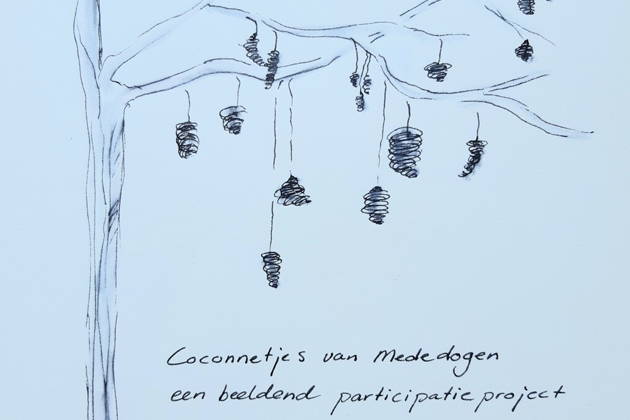 Coconnetjes van Mededogen
een beeldend participatie project